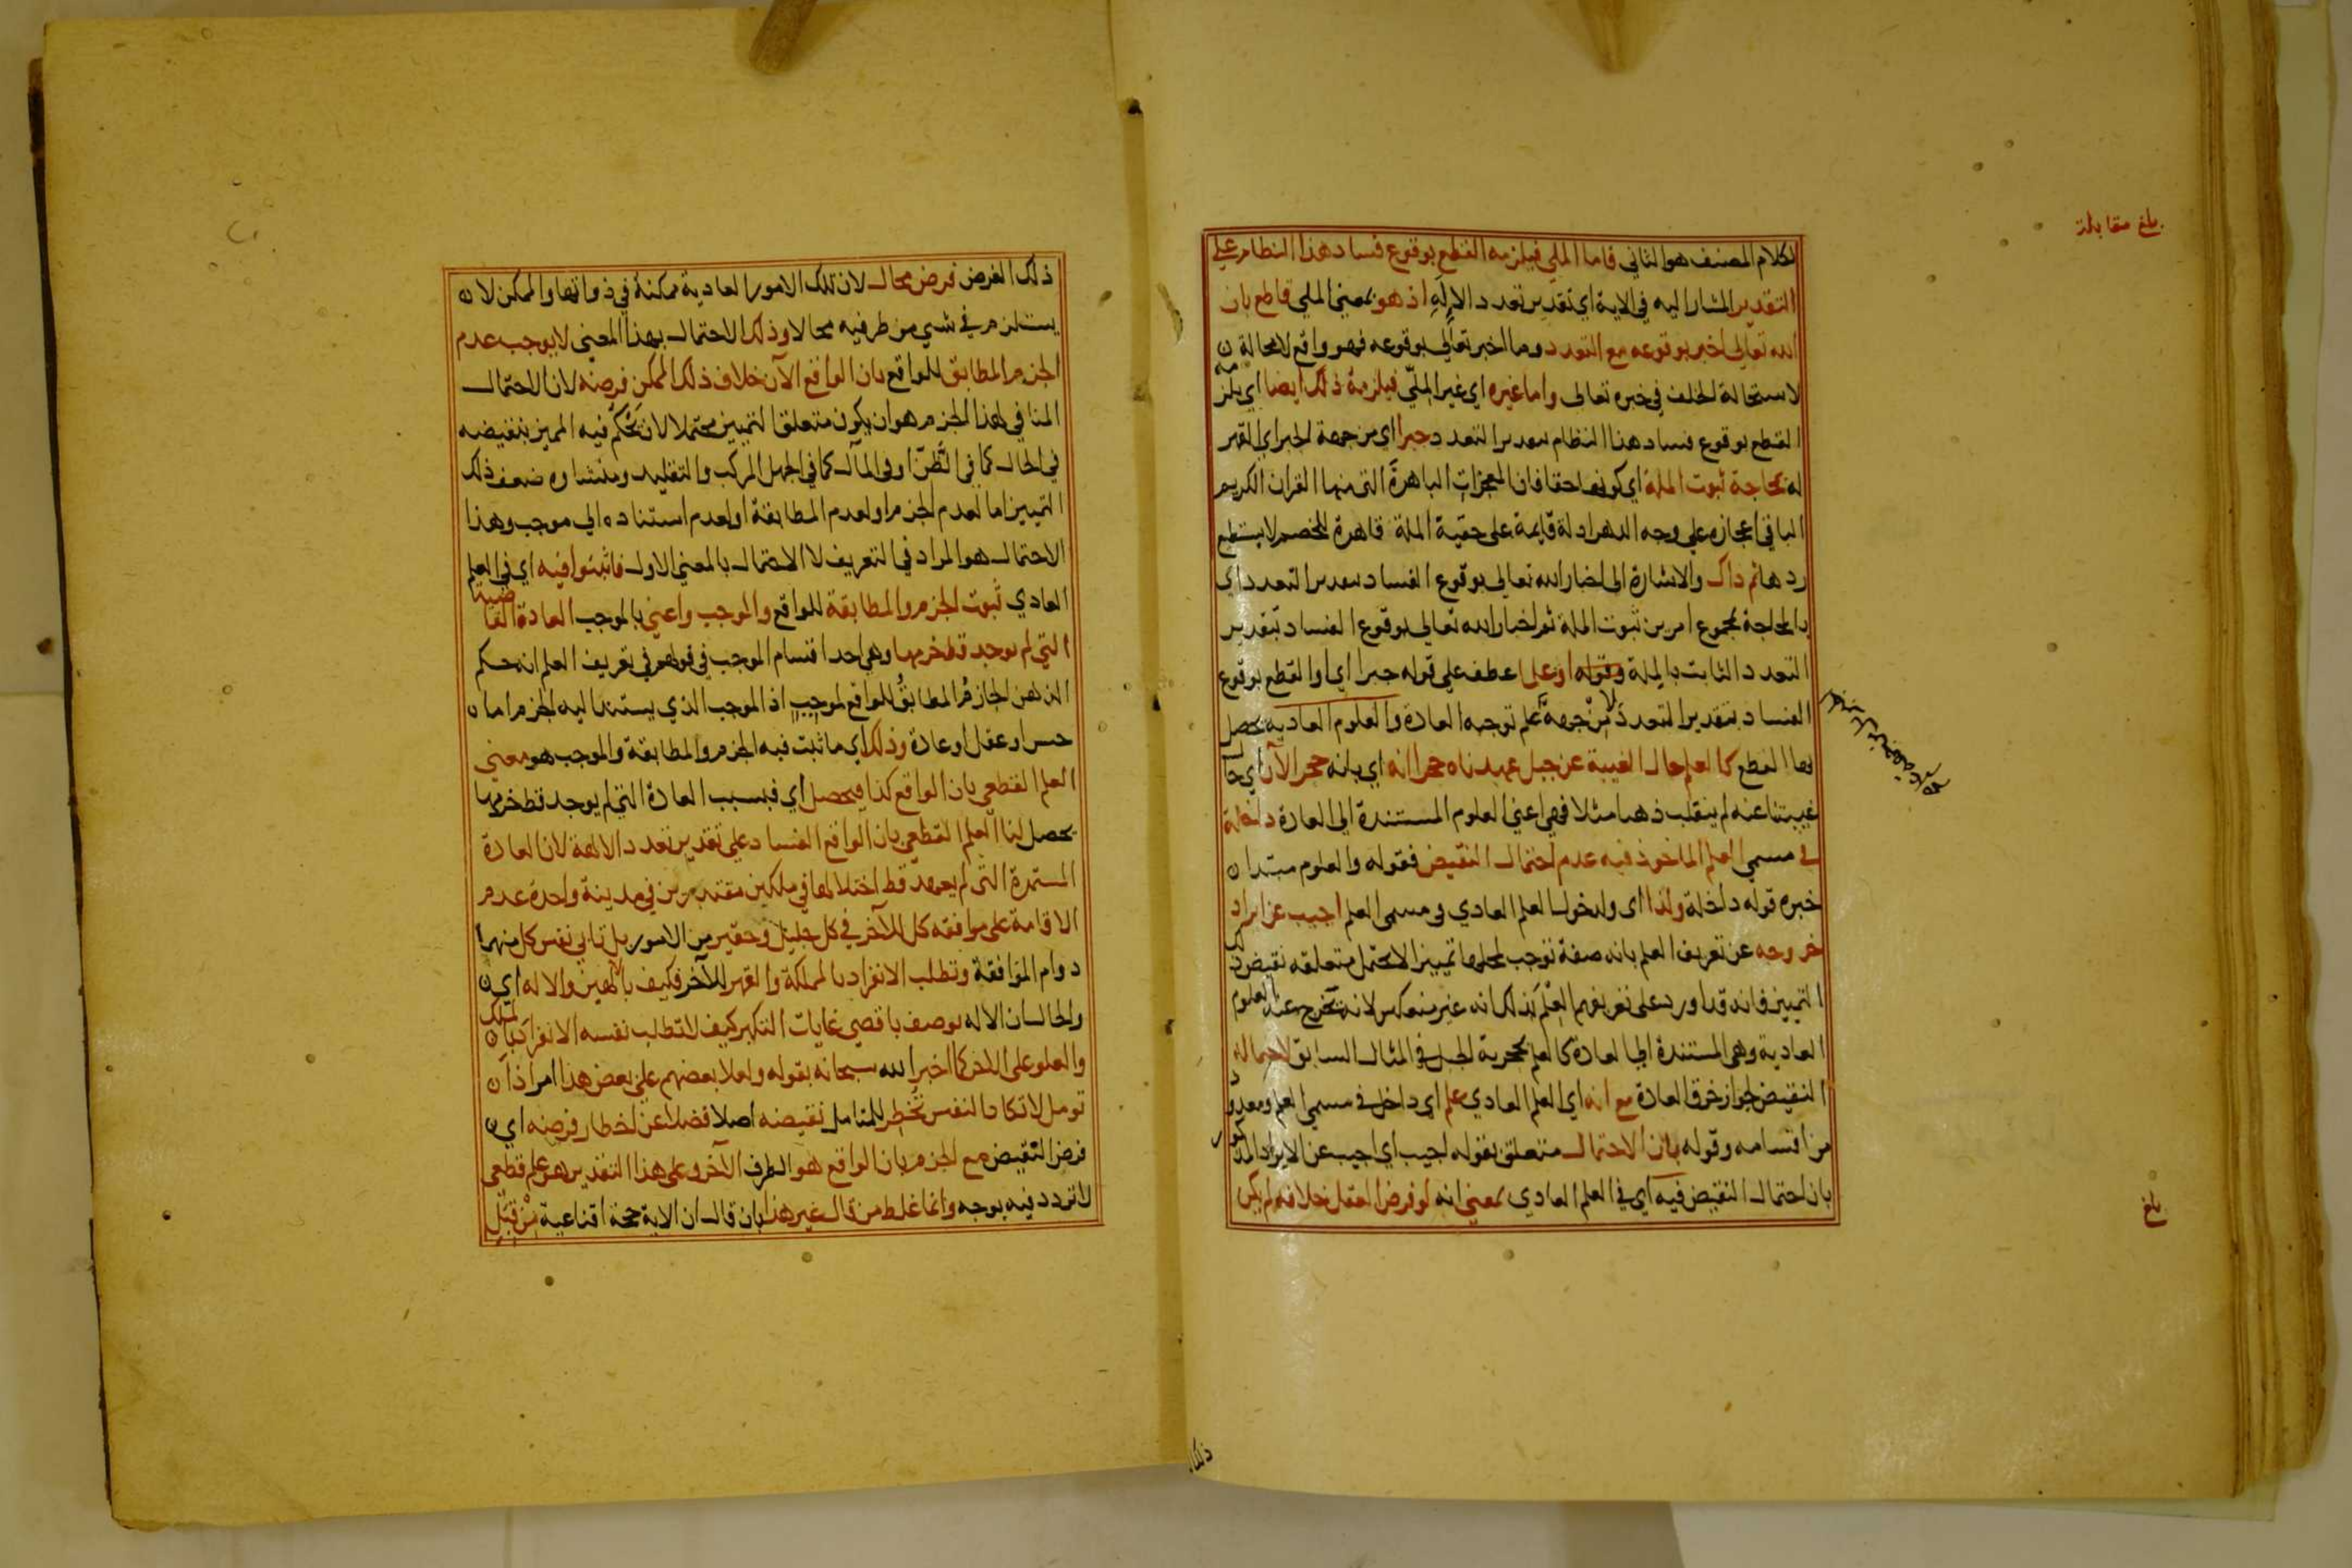 بلغ مقابلة
لكلام المصنف هو الثاني فاما الملي فيلزمه القطع بوقوع فساد هذا النظام علي
التقدير المشار اليه في الاية اي تقدير تعدد الاله اذ هو يعني الملي قاطع بان
الله تعالي اخبر بوقوعه مع التعدد وما اخبر تعالي بوقوعه فهو واقع لا محالة
لاستحالة الخلف في خبره تعالى واما غيره اي غير الملّي فيلزمه ذلك ايضا اي يلزمه
القطع بوقوع فساد هذا النظام بتقدير التعدد جبرا اي من جهة الجبر اي القهر
له بمحاجة ثبوت الملة اي كونها حقا فان المعجزات الباهرة التي منها القران الكريم
الباقي اعجازه علي وجه الدهر ادلة قايمة على حقية الملة قاهرة للخصم لا يستطيع
ردها ثم ذاك والاشارة الى اخبار الله تعالي بوقوع الفساد بتقدير التعدد اي
بالمحاجة بمجموع امرين ثبوت الملة ثم اخبار الله تعالي بوقوع الفساد بتقدير
التعدد الثابت بالملة وقوله او علما عطف علي قوله جبرا اي او القطع بوقوع
الفساد بتقدير التعدد لا من جهة علم توجبه العادة والعلوم العادية يحصل
بها القطع كالعلم حال الغيبة عن جبل عهدناه حجرا انه اي بانه حجر الآن اي حال
غيبتنا عنه لم ينقلب ذهبا مثلا فهي اعني العلوم المستندة الي العادة داخلة
في مسمي العلم الماخوذ فيه عدم احتمال النقيض فقوله والعلوم مبتدا
خبره قوله داخلة ولذا اي ولدخول العلم العادي في مسمى العلم اجيب عن ايراد
خروجه عن تعريف العلم بانه صفة توجب لمحلها تمييزا لا يحتمل متعلقه نقيض ذلك
التمييز فانه قد اورد على تعريفهم العلم بذلك انه غير منعكس لانه يخرج عنه العلوم
العادية وهي المستندة الي العادة كالعلم بحجرية الجبل في المثال السابق لاحتماله
النقيض لجواز خرق العادة مع انه اي العلم العادي علم اي داخل في مسمي العلم ومعدود
من اقسامه وقوله بان الاحتمال متعلق بقوله اجيب اي اجيب عن الايراد المذكور
بان احتمال النقيض فيه اي في العلم العادي بمعني انه لو فرض العقل خلافه لم يكن
بلغ
ذلك
ذلك الفرض فرض محال لان تلك الامور العادية ممكنة في ذواتها والممكن لا
يستلزم في شي من طرفيه محالا وذلك الاحتمال بهذا المعني لا يوجب عدم
الجزم المطابق للواقع بان الواقع الآن خلاف ذلك الممكن فرضه لان الاحتمال
المنافي لهذا الجزم هو ان يكون متعلق التمييز محتملا لان يَحْكُم فيه المميز بنقيضه
في الحال كما في الظنّ او في المآل كما في الجهل المركب والتقليد ومنشاوه ضعف ذلك
التمييز اما لعدم الجزم او لعدم المطابقة او لعدم استناده الي موجب وهذا
الاحتمال هو المراد في التعريف لا الاحتمال بالمعني الاول فاثبتوا فيه اي في العلم
العادي ثبوت الجزم والمطابقة للواقع والموجب واعني بالموجب العادة القاضية
التي لم يوجد قط خرمها وهي احد اقسام الموجب في قولهم في تعريف العلم انه حكم
الذهن الجازمُ المطابقُ للواقع لموجِبٍ اذ الموجب الذي يستند اليه الجزم اما
حس او عقل او عادة وذلك اي ما ثبت فيه الجزم والمطابقة والموجب هو معني
العلم القطعي بان الواقع كذا فيحصل اي فبسبب العادة التي لم يوجد قط خرمها
يحصل لنا العلم القطعي بان الواقع الفساد علي تقدير تعدد الالهة لان العادة
المستمرة التي لم يعهد قط اختلالها في ملكين مقتدرين في مدينة واحدة عدم
الاقامة على موافقه كل للآخر في كل جليل وحقير من الامور بل تابي نفس كل منهما
دوام الموافقة وتطلب الانفراد بالمملكة والقهر للآخر فكيف بالهين والاله اي
والحال ان الاله يوصف باقصي غايات التكبر كيف لا تطلب نفسه الانفراد بالملك
والعلو على الاخر كما اخبر الله سبحانه بقوله ولعلا بعضهم على بعض هذا امر اذا
تومل لا تكاد النفس تُخْطِر للمتامل نقيضه اصلا فضلا عن اخطار فرضه اي
فرض النقيض مع الجزم بان الواقع هو الطرف الآخر وعلى هذا التقدير هو علم قطعى
لا تردد فيه بوجه وانما غلط من قال غير هذا بان قال ان الاية حجة اقناعية مِنْ قِبَلِ